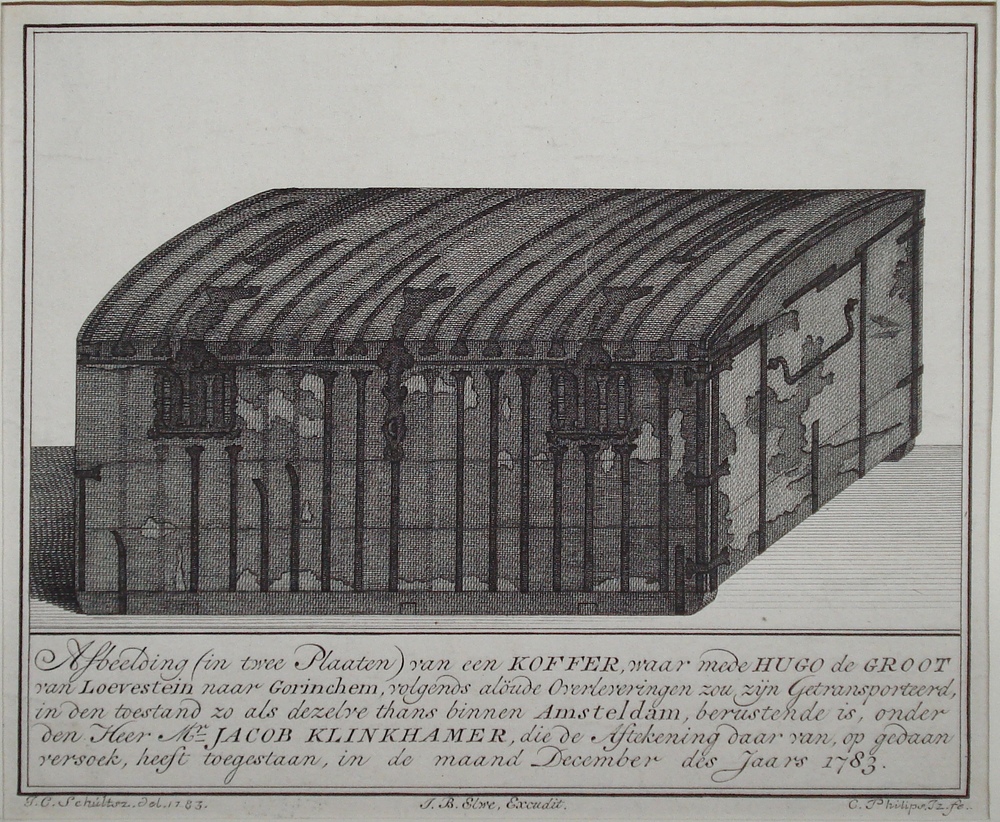 Afbeelding (in twee Plaaten) van een KOFFER, waar mede HUGO de GROOT
van Loevestein naar Gorinchem, volgends alöude Overleveringen zou zijn Getransporteerd,
in den toestand zo als dezelve thans binnen Amsteldam, berustende is, onder
den Heer Mr. JACOB KLINKHAMER, die de Aftekening daar van, op gedaan
versoek, heeft toegestaan, in de maand December des Jaars 1783.
J. C. Schultsz. del. 1783. J. B. Elwe, Excudit. C. Philips, Jz. fe.